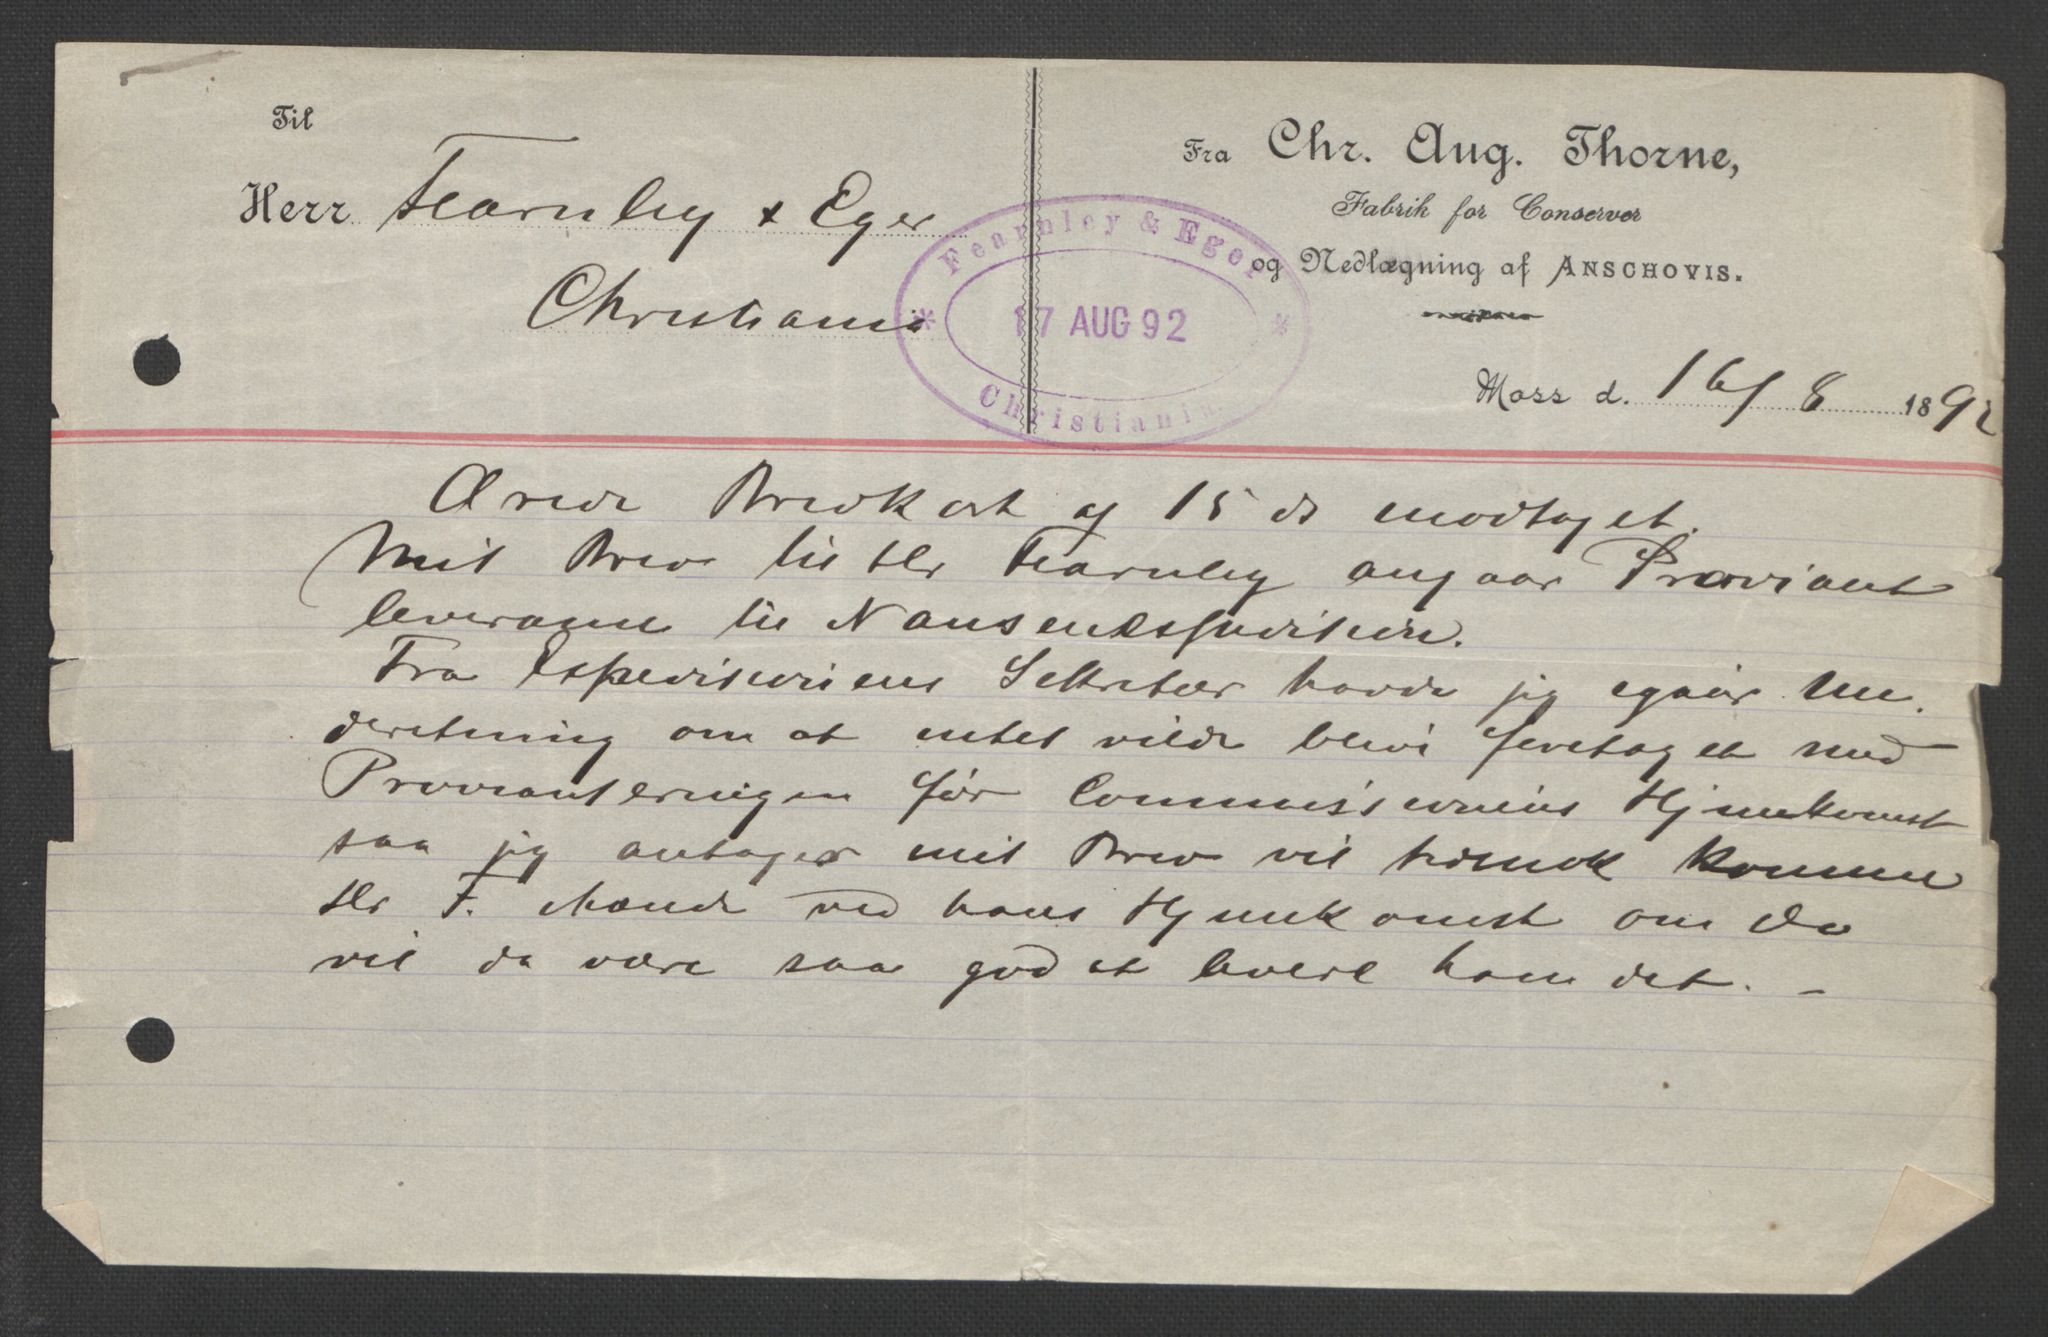 Til
Herr Fearnley & Eger
Christiania
Fra Chr. Aug. Thorne,
Fabrik for Conserver
og Nedlægning af ANSCHOVIS.
Fearnley & Eger
* 17 AUG 92 *
Christiania
Moss d. 16/8 1892
Ærede Brevkort af 15 ds modtaget.
Mit Brev til Hr Fearnley angaar Proviant
leverance til Nansenexpeditionen.
Fra Expeditionens Sekretær havde jeg igaar Un
derretning om at intet vilde blive foretaget med
Provianteringen før Commissionens Hjemkomst
saa jeg antager mit Brev vil tidsnok komme
Hr F. ihænde ved hans Hjemkomst om De
vil da være saa god at levere ham det. -